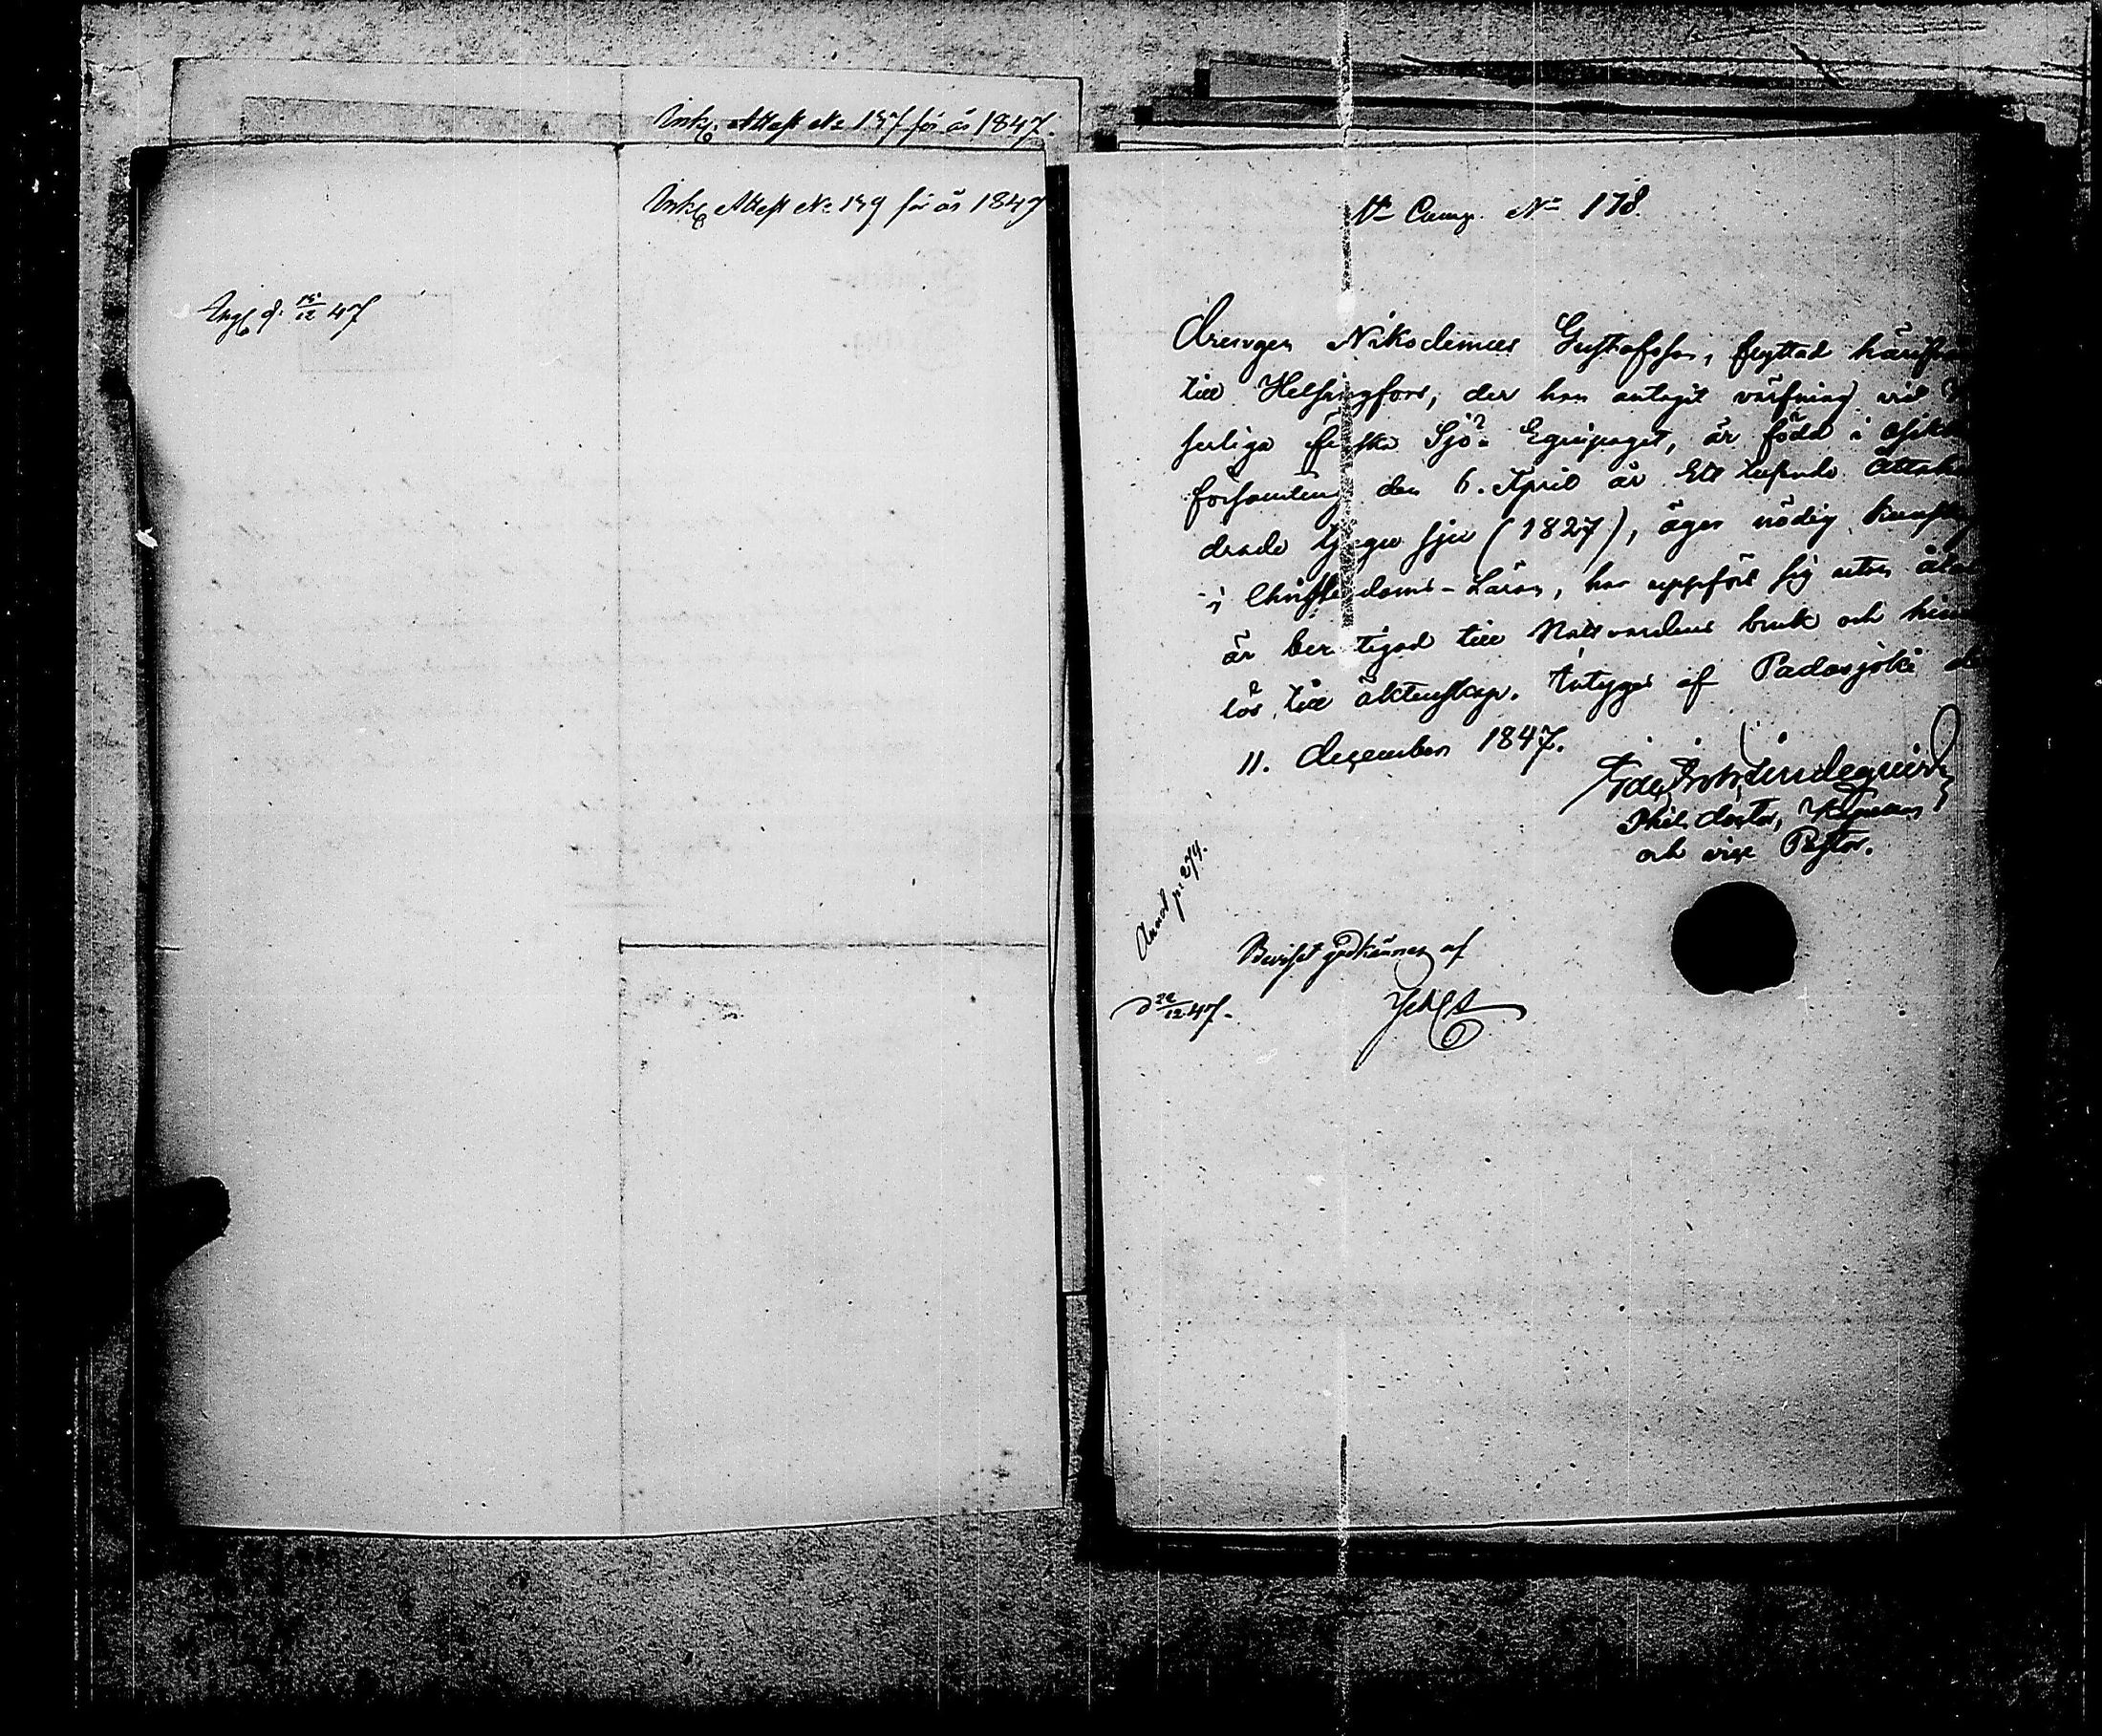 Ink. Attest No 137 för år 1847.
Ink. Attest No 139 för år 1847
Ingl. d. 15/12 47
Comp. No 178.
Drengen Nikodemus Gustafsson, flyttad härifrån
till Helsingfors, der han antagit värfning vid
serliga finska Sjö-Equipaget, är född i Asikkala
församling den 6. April år Ett tusende Åttahun
drade tjugu sju (1827), äger nödig kunskap
i Christendoms-Läran, har uppfört sig utan
är berättigad till Nattvardens bruk och hinder
lös till äktenskap. Intygar af Padasjoki
11. December 1847.
Lindequist
Phil. doctor, Kapellan
och vice Pastor.
Annot p. 274.
Beviset godkännes af
d 22/12 47.